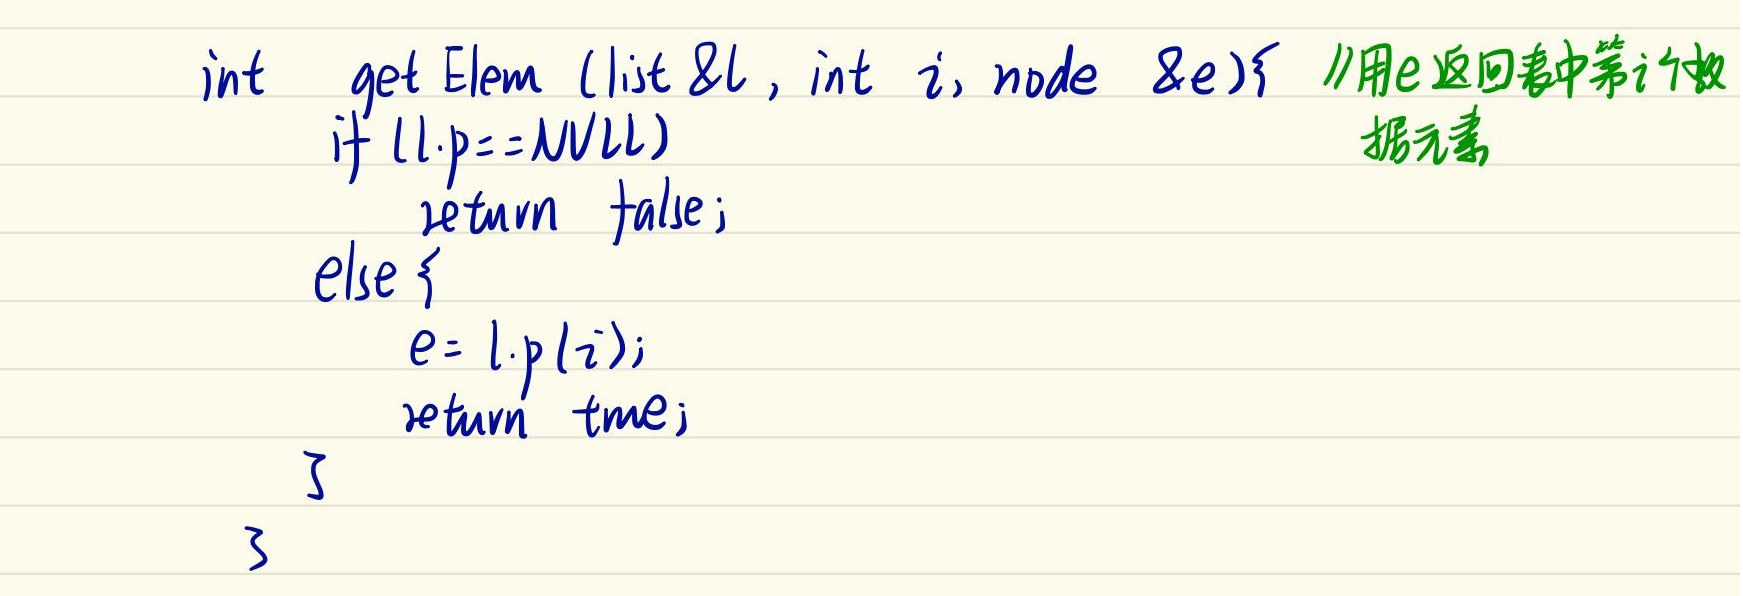 int get Elem (list &l, int i, node &e){ //用e返回表中第i个数
据元素
if (l.p==NULL)
return false;
else {
e= l.p(i);
return true;
}
}